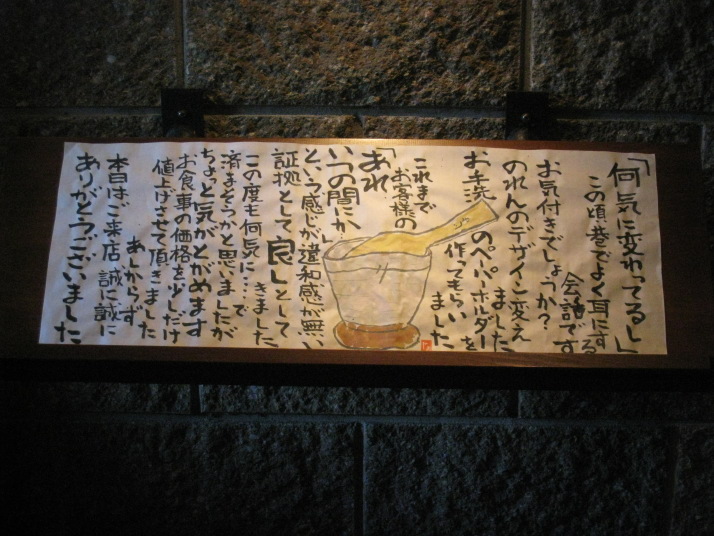 「何気に変わってるし」
この頃巷でよく耳にする
会話です
お気付きでしょうか?
のれんのデザイン変え
ました
お手洗のペーパーホルダーを
作ってもらい
ました
これまで
お客様の
「あれ
いつの間にか」
という感じが違和感が無い
証拠として良しとして
きました
この度も何気に…で
済まそうかと思いましたが
ちょっと気がとがめます
お食事の価格を少しだけ
値上げさせて頂きました
あしからず
本日はご来店誠に誠に
ありがとうございました